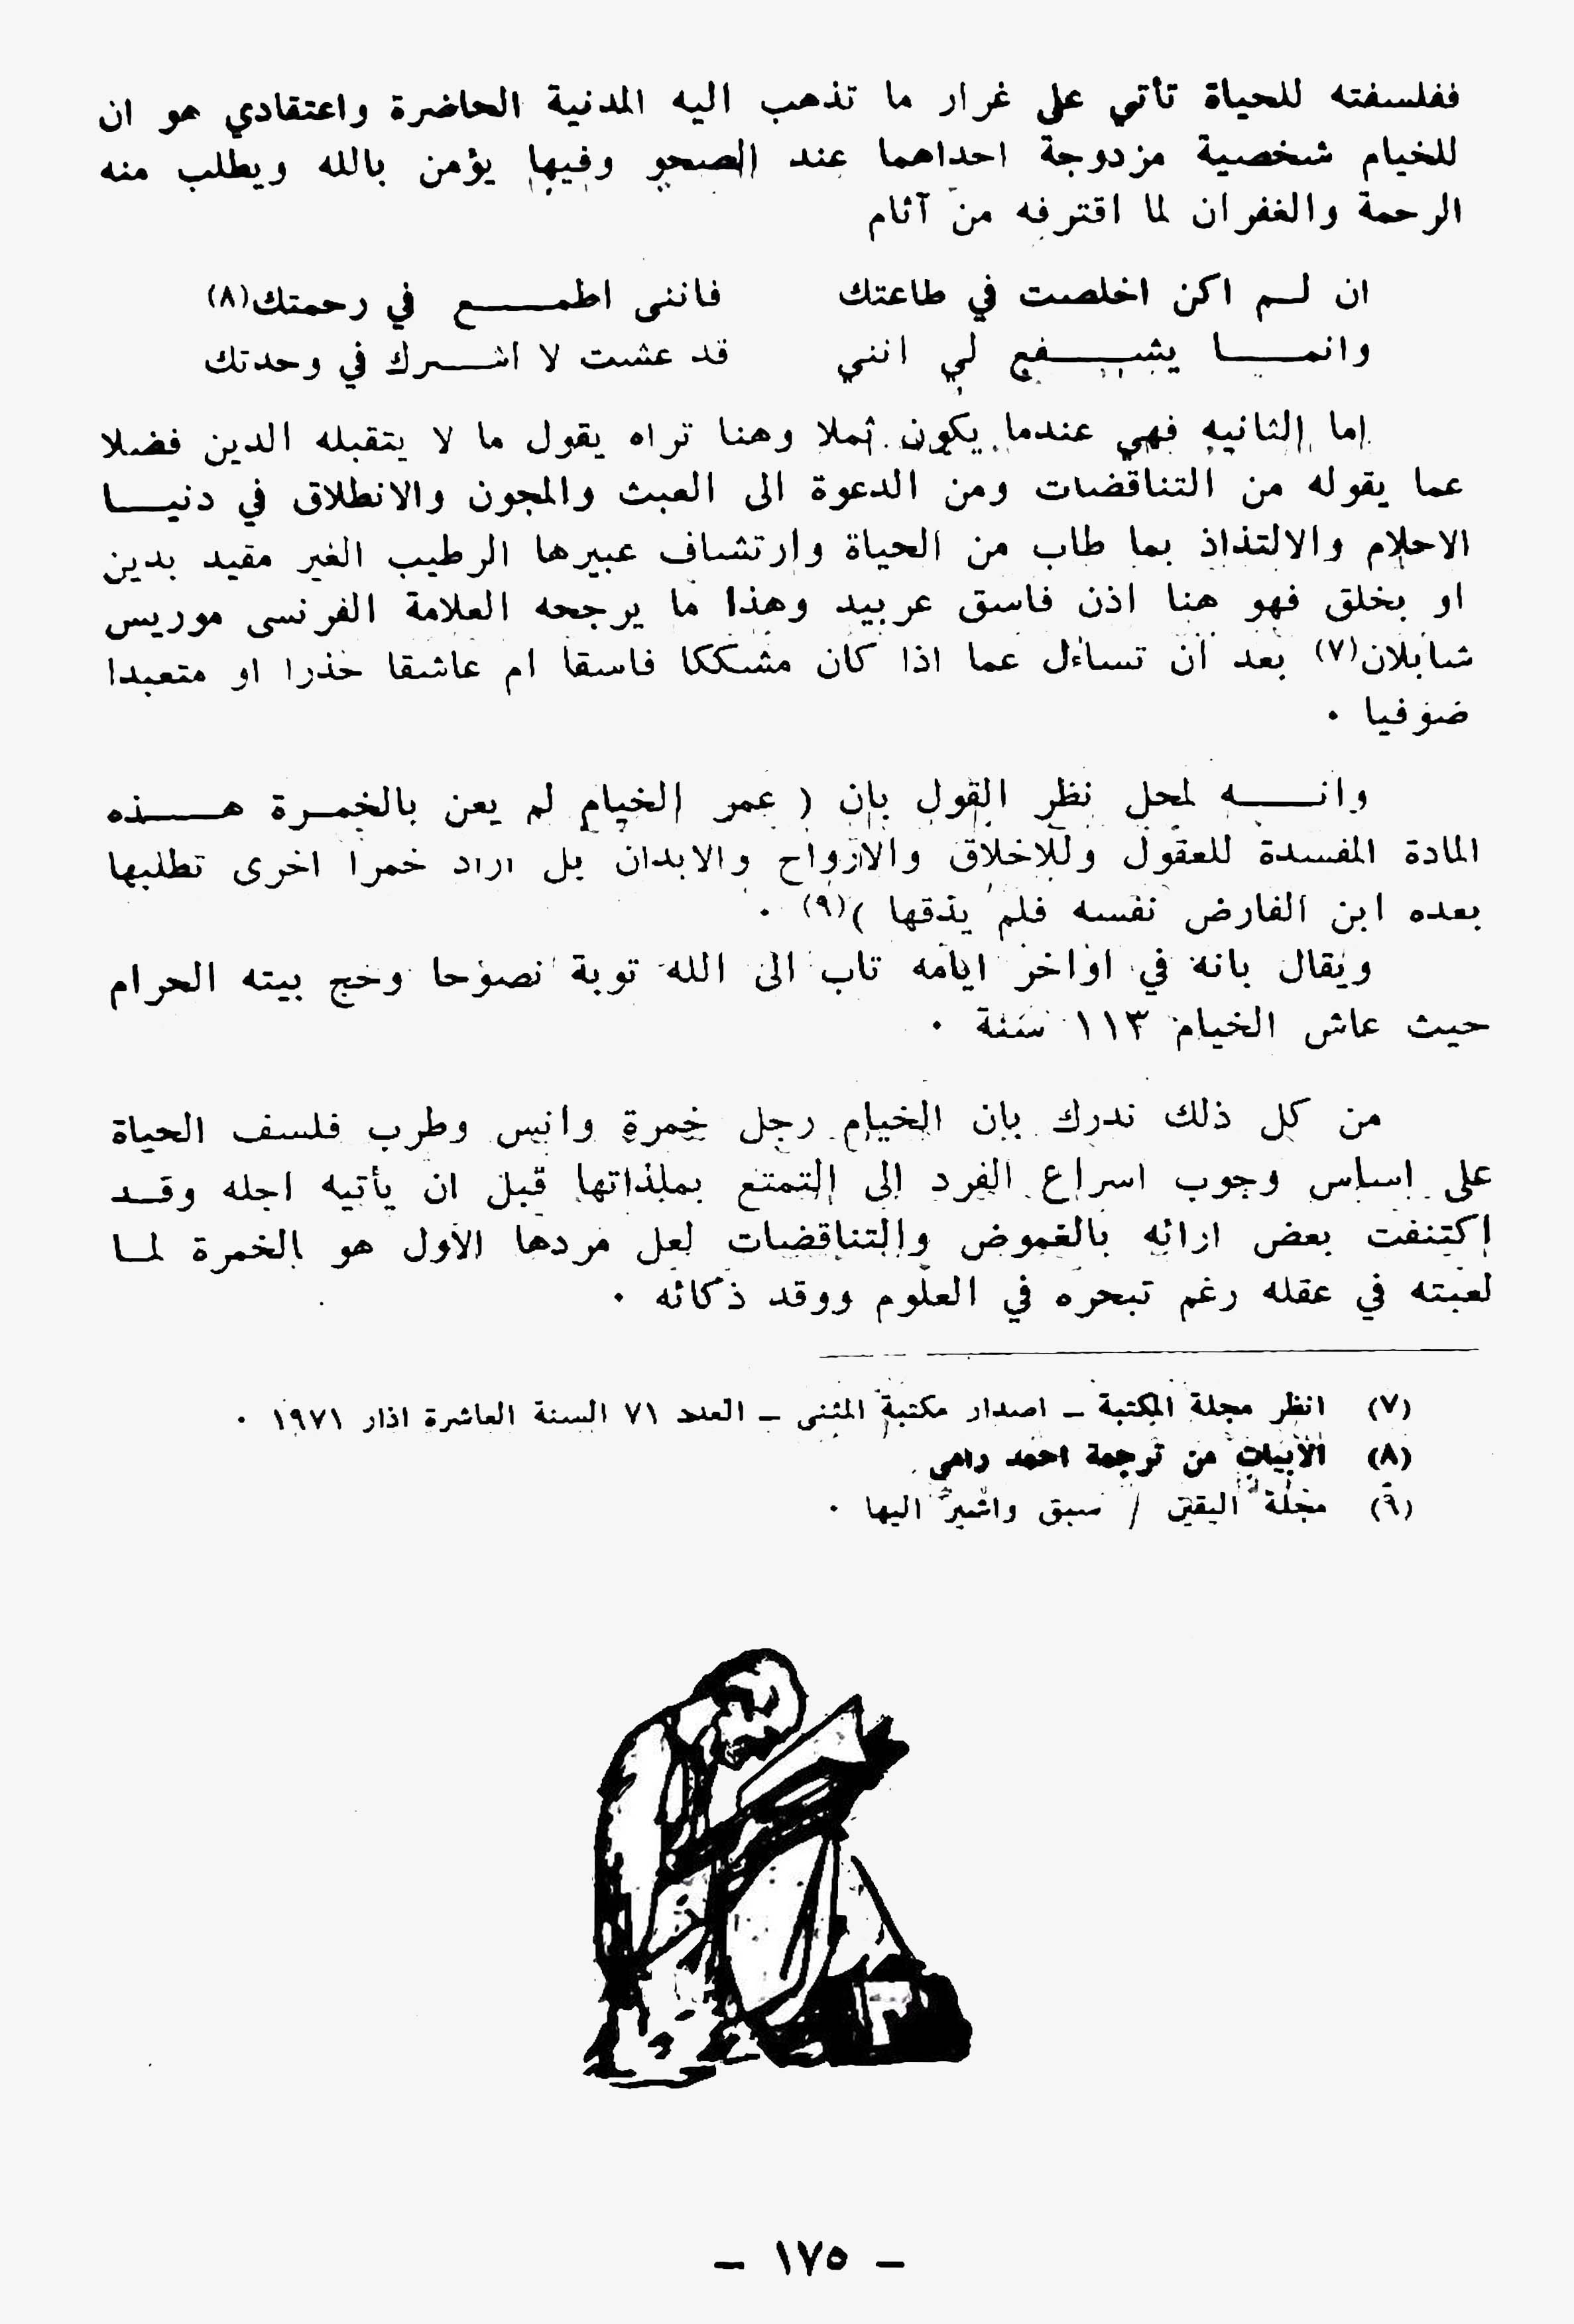 ففلسفته للحياة تأتي على غرار ما تذهب اليه المدنية الحاضرة واعتقادي هو ان
للخيام شخصية مزدوجة احداهما عند الصحو وفيها يؤمن بالله ويطلب منه
الرحمة والغفران لما اقترفه من آثام
ان لـم اكن اخلصت في طاعتك فاننى اطمـــع في رحمتك(٨)
وانمـــا يشـــفع لي انني قد عشت لا اشـــرك في وحدتك
اما الثانيه فهي عندما يكون ثملا وهنا تراه يقول ما لا يتقبله الدين فضلا
عما يقوله من التناقضات ومن الدعوة الى العبث والمجون والانطلاق في دنيـــا
الاحلام والالتذاذ بما طاب من الحياة وارتشاف عبيرها الرطيب الغير مقيد بدين
او بخلق فهو هنا اذن فاسق عربيد وهذا ما يرجحه العلامة الفرنسى موريس
شابلان(٧) بعد ان تساءل عما اذا كان مشككا فاسقا ام عاشقا حذرا او متعبدا
صوفيا ٠
وانـــه لمحل نظر القول بان ( عمر الخيام لم يعن بالخمـرة هـــذه
المادة المفسدة للعقول وللاخلاق والارواح والابدان بل اراد خمرا اخرى تطلبها
بعده ابن الفارض نفسه فلم يذقها )(٩) ٠
ويقال بانه في اواخر ايامه تاب الى الله توبة نصوحا وحج بيته الحرام
حيث عاش الخيام ١١٣ سنة ٠
من كل ذلك ندرك بان الخيام رجل خمرة وانس وطرب فلسف الحياة
على اساس وجوب اسراع الفرد الى التمتع بملذاتها قبل ان يأتيه اجله وقـد
اكتنفت بعض ارائه بالغموض والتناقضات لعل مردها الاول هو الخمرة لمـا
لعبته في عقله رغم تبحره في العلوم ووقد ذكائه ٠
(٧) انظر مجلة المكتبة ـ اصدار مكتبة المثنى ـ العدد ٧١ السنة العاشرة اذار ١٩٧١ ٠
(٨) الابيات من ترجمة احمد رامي
(٩) مجلة اليقين / سبق واشير اليها ٠
ـ ١٧٥ ـ